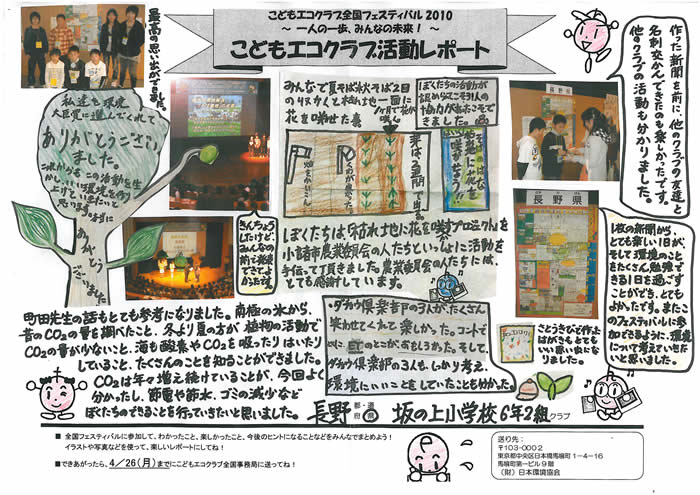 こどもエコクラブ全国フェスティバル 2010
～ 一人の一歩、みんなの未来！ ～
こどもエコクラブ活動レポート
最高の思い出ができました。
私達を環境
大臣賞に選んでくれて
ありがとうござい
ました。
これからも この活動を生
かし、いい環境を作り
上げていきたいと
思います。本当に
ありがとう
ございました
みんなで夏そば秋そば2回
花を咲せた事
ぼくたちの活動が
協力が出たこそで
きました。
作った新聞を前に、他のクラブの友達と
名刺交かんできたのも楽しかったです。
他のクラブの活動も分かりました。
きんちょう
したけど、
みんなの
前で発表
できてよ
かったです。
ぼくたちは「荒れ地に花を咲かせようプロジェクト」を
小諸市農業委員会の人たちといっしょに活動を
手伝って頂きました。農業委員会の人たちには、
とても感謝しています。
長野県
長野県
1枚の新聞から、
とても楽しい1日が、
そして環境のこと
をたくさん勉強で
きる1日を過ごす
ことができ、とても
よかったです。またこ
のフェスティバルに参
加できるように、環境
について考えていきた
いと思いました。
町田先生の話もとても参考になりました。南極の氷から、
昔のCO₂の量を調べたこと、冬より夏の方が植物の活動で
CO₂の量が少ないこと、海も酸素やCO₂を吸ったりはいたり
していること、たくさんのことを知ることができました。
CO₂は年々増え続けていることが、今回よく
分かったし、節電や節水、ゴミの減少など
ぼくたちのできることを行っていきたいと思いました。
ダチョウ倶楽部の3人が、たくさん
笑わせてくれて楽しかった。コントで
とくに、ETのところがおもしろかった。そして、
ダチョウ倶楽部の3人も、しっかり考え、
環境にいいことをしていたことも分かった。
さとうきびで作った
はがきもとても
いい思い出に
なりました。
長野 都・道・府・県 坂の上小学校6年2組クラブ
■ 全国フェスティバルに参加して、わかったこと、楽しかったこと、今後のヒントになることなどをみんなでまとめよう！
イラストや写真などを使って、楽しいレポートにしてね！
■できあがったら、4／26（月）までにこどもエコクラブ全国事務局に送ってね！
送り先：
〒103-0002
東京都中央区日本橋馬喰町1－4－16
馬喰町第一ビル9階
（財）日本環境協会